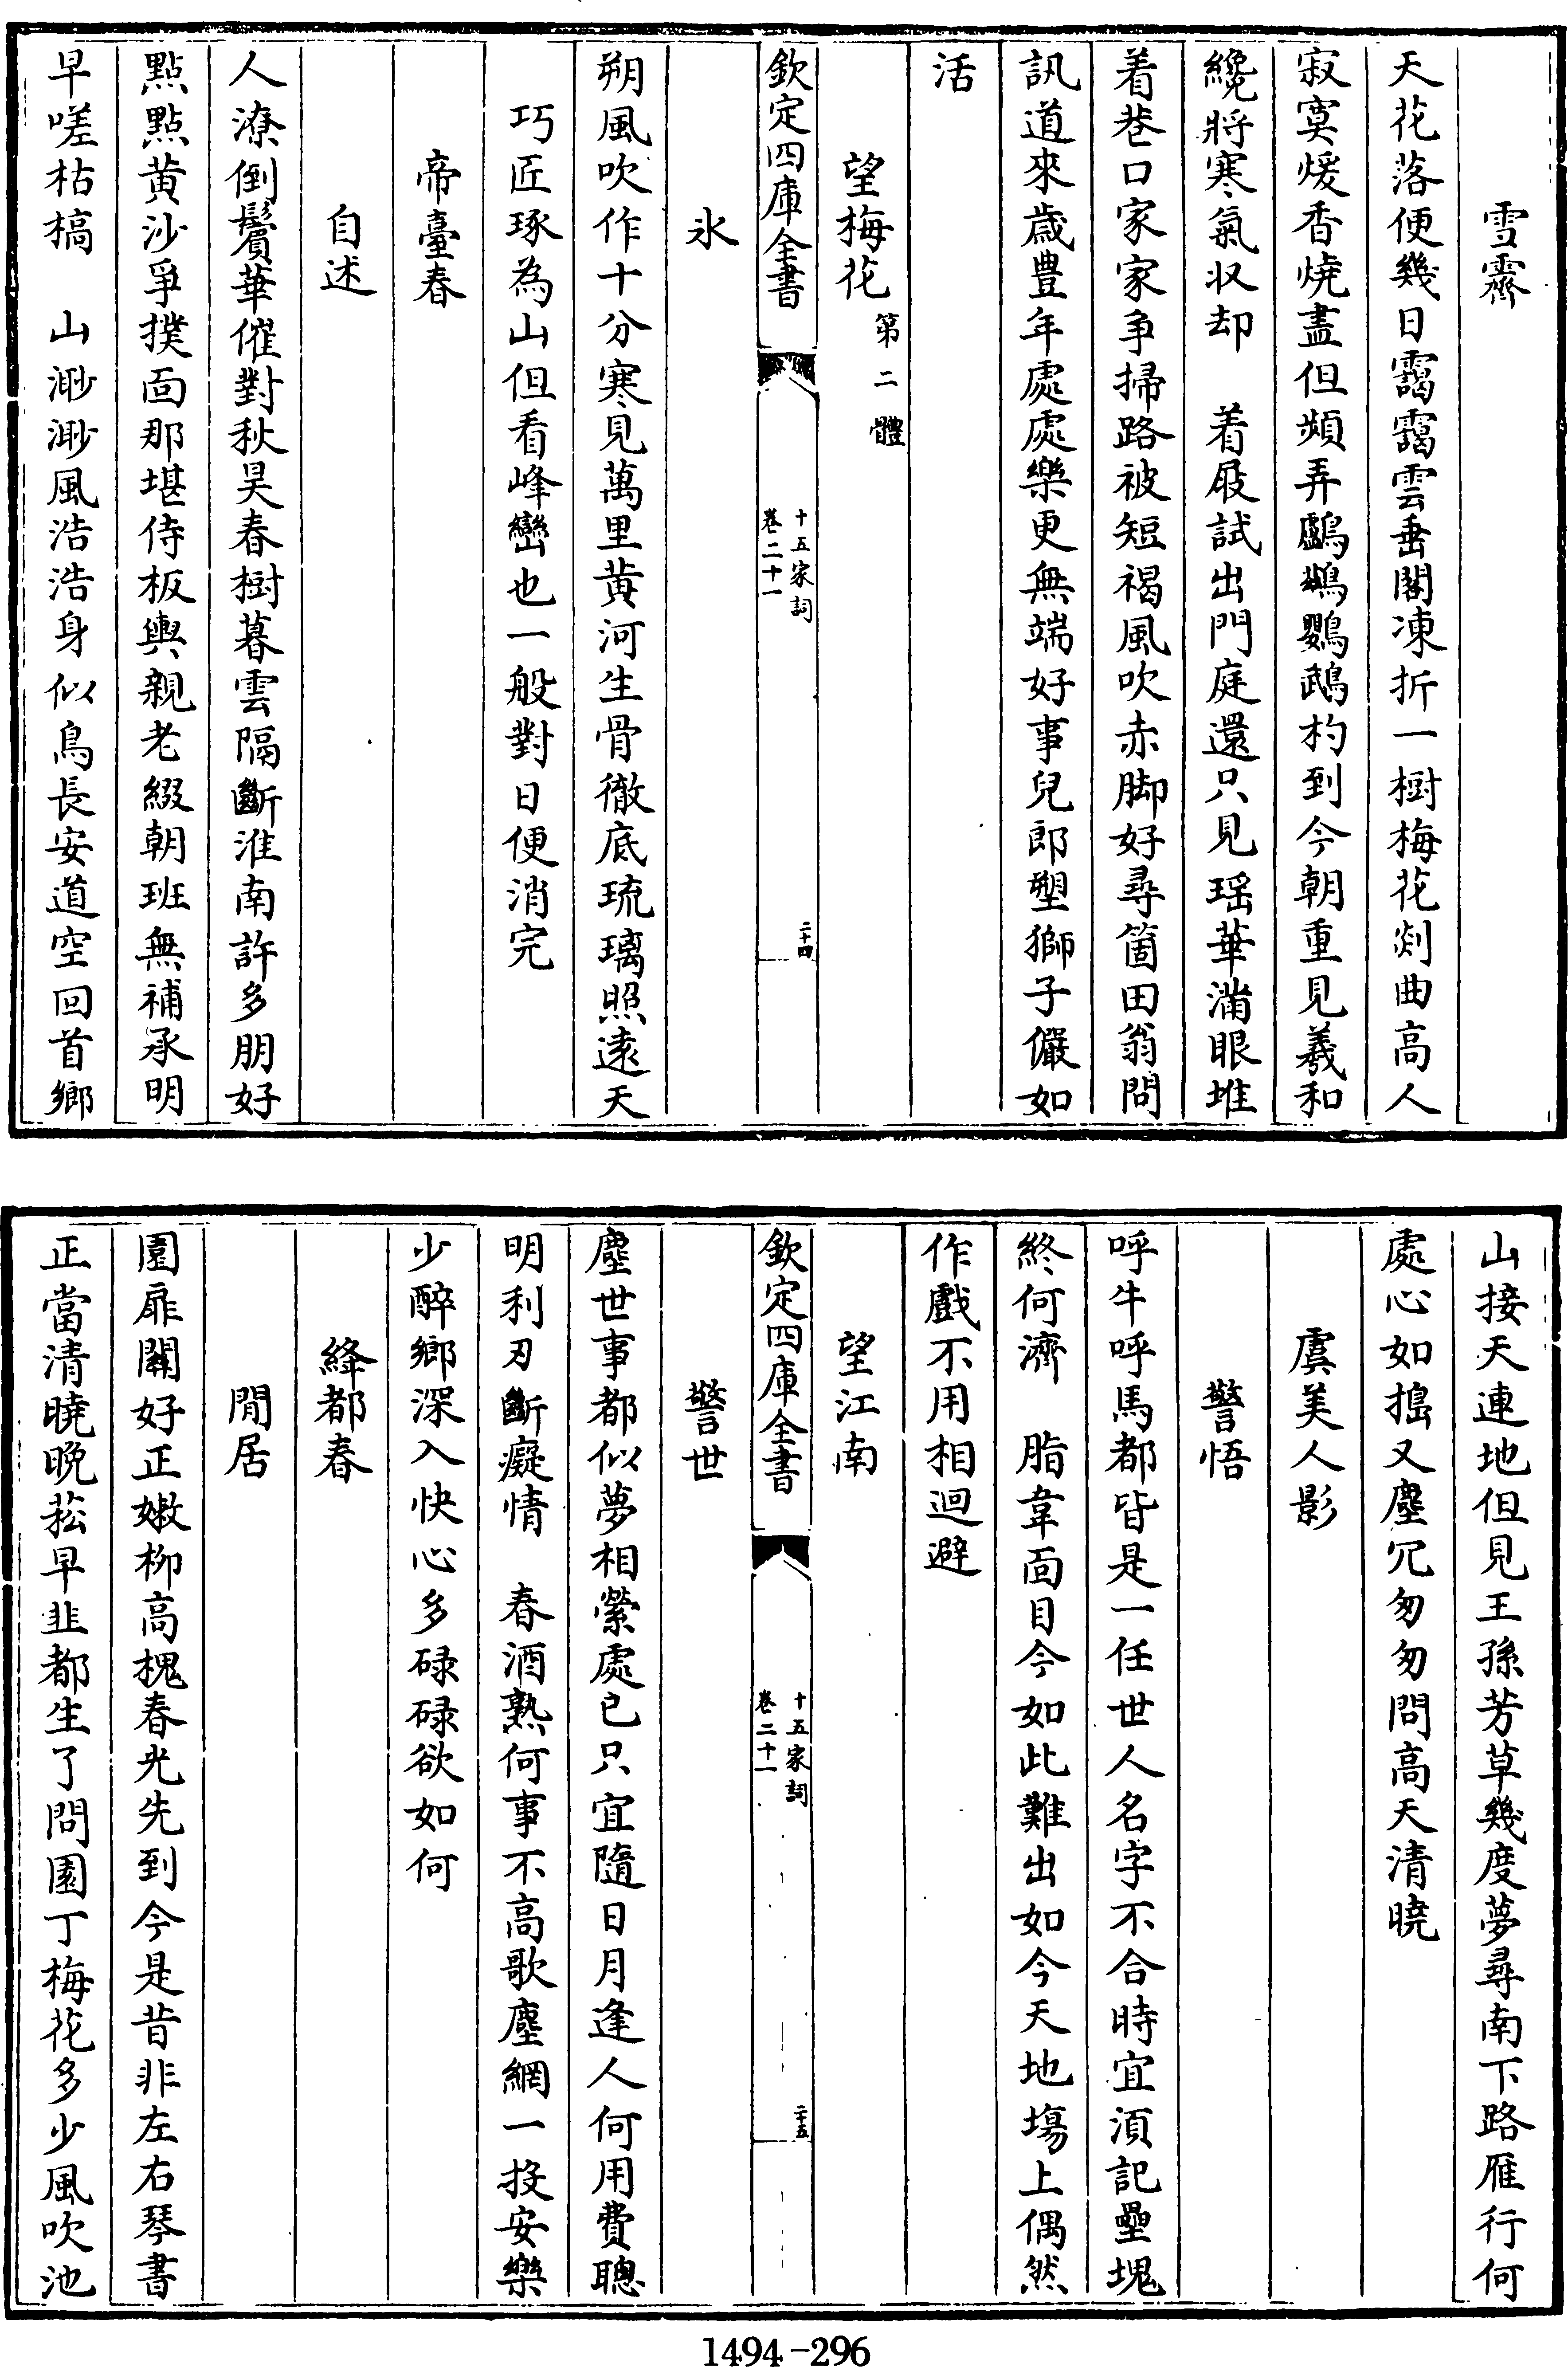 雪霽
天花落便幾日靄靄雲垂閣凍折一樹梅花剡曲高人
寂寞煖香燒盡但頻弄鸕鷀鸚鵡杓到今朝重見羲和
纔將寒氣収却　着屐試出門庭還只見瑶華滿眼堆
着巷口家家争掃路被短褐風吹赤脚好尋箇田翁問
訊道來歲豊年處處樂更無端好事兒郎塑獅子儼如
活
望梅花第二體
欽定四庫全書
十五家詞
卷二十一
二十四
氷
朔風吹作十分寒見萬里黄河生骨徹底琉璃照遠天
巧匠琢為山但看峰巒也一般對日便消完
帝臺春
自述
人潦倒鬢華催對秋昊春樹暮雲隔斷淮南許多朋好
點點黄沙爭撲面那堪侍板輿親老綴朝班無補承明
早嗟枯槁　山渺渺風浩浩身似鳥長安道空回首鄉
山接天連地但見王孫芳草幾度夢尋南下路雁行何
處心如搗又塵冗匆匆問高天清曉
虞美人影
警悟
呼牛呼馬都皆是一任世人名字不合時宜湏記壘塊
終何濟　脂韋面目今如此難出如今天地塲上偶然
作戲不用相迴避
望江南
欽定四庫全書
十五家詞
卷二十一
二十五
警世
塵世事都似夢相縈處已只宜隨日月逢人何用費聰
明利刃斷癡情　春酒熟何事不高歌塵網一投安樂
少醉鄉深入快心多碌碌欲如何
絳都春
閒居
園扉闢好正嫩柳高槐春光先到今是昔非左右琴書
正當清曉晚菘早韭都生了問園丁梅花多少風吹池
1494-296